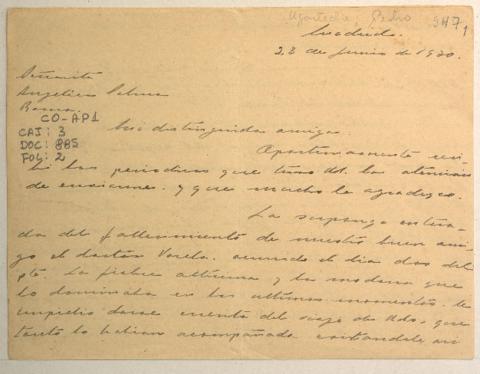 Ugarteche, Pedro
SH71
23 de junio de 1930.
Señorita
Angélica Palma
CO-AP1
CAJ: 3
DOC: 885
FOL: 2
Mi distinguida amiga:
Oportunamente reci-
bí los periódicos que tuvo Vd. la atención
de enviarme. y que mucho le agradezco.
da del fallecimiento de nuestro buen ami-
go el doctor Varela. acaecido el día dos del
pte. La fiebre altísima y la modorra que
lo dominaba en los últimos momentos. le
impidió darse cuenta del viaje de Uds. que
tanto lo habían acompañado